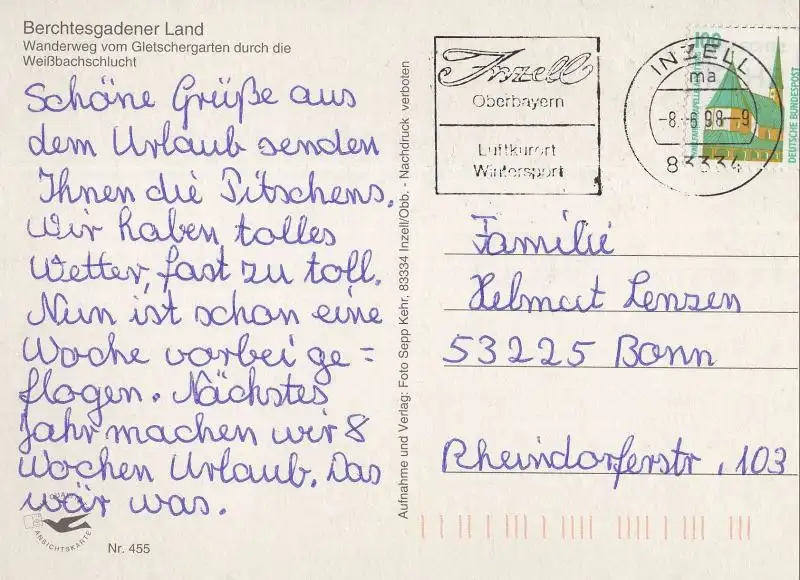 Berchtesgadener Land
Wanderweg vom Gletschergarten durch die
Weißbachschlucht
Schöne Grüße aus
dem Urlaub senden
Ihnen die Pitschens.
Wir haben tolles
Wetter, fast zu toll.
Nun ist schon eine
Woche vorbei ge=
flogen. Nächstes
Jahr machen wir 8
Wochen Urlaub. Das
wär was.
QUALITÄTS
ANSICHTSKARTE
Nr. 455
Aufnahme und Verlag: Foto Sepp Kehr, 83334 Inzell/Obb. - Nachdruck verboten
Inzell
Oberbayern
Luftkurort
Wintersport
INZELL
ma
-8.-6.98-9
83334
100
DEUTSCHE BUNDESPOST
Familie
Helmut Lenzen
53225 Bonn
Rheindorferstr, 103